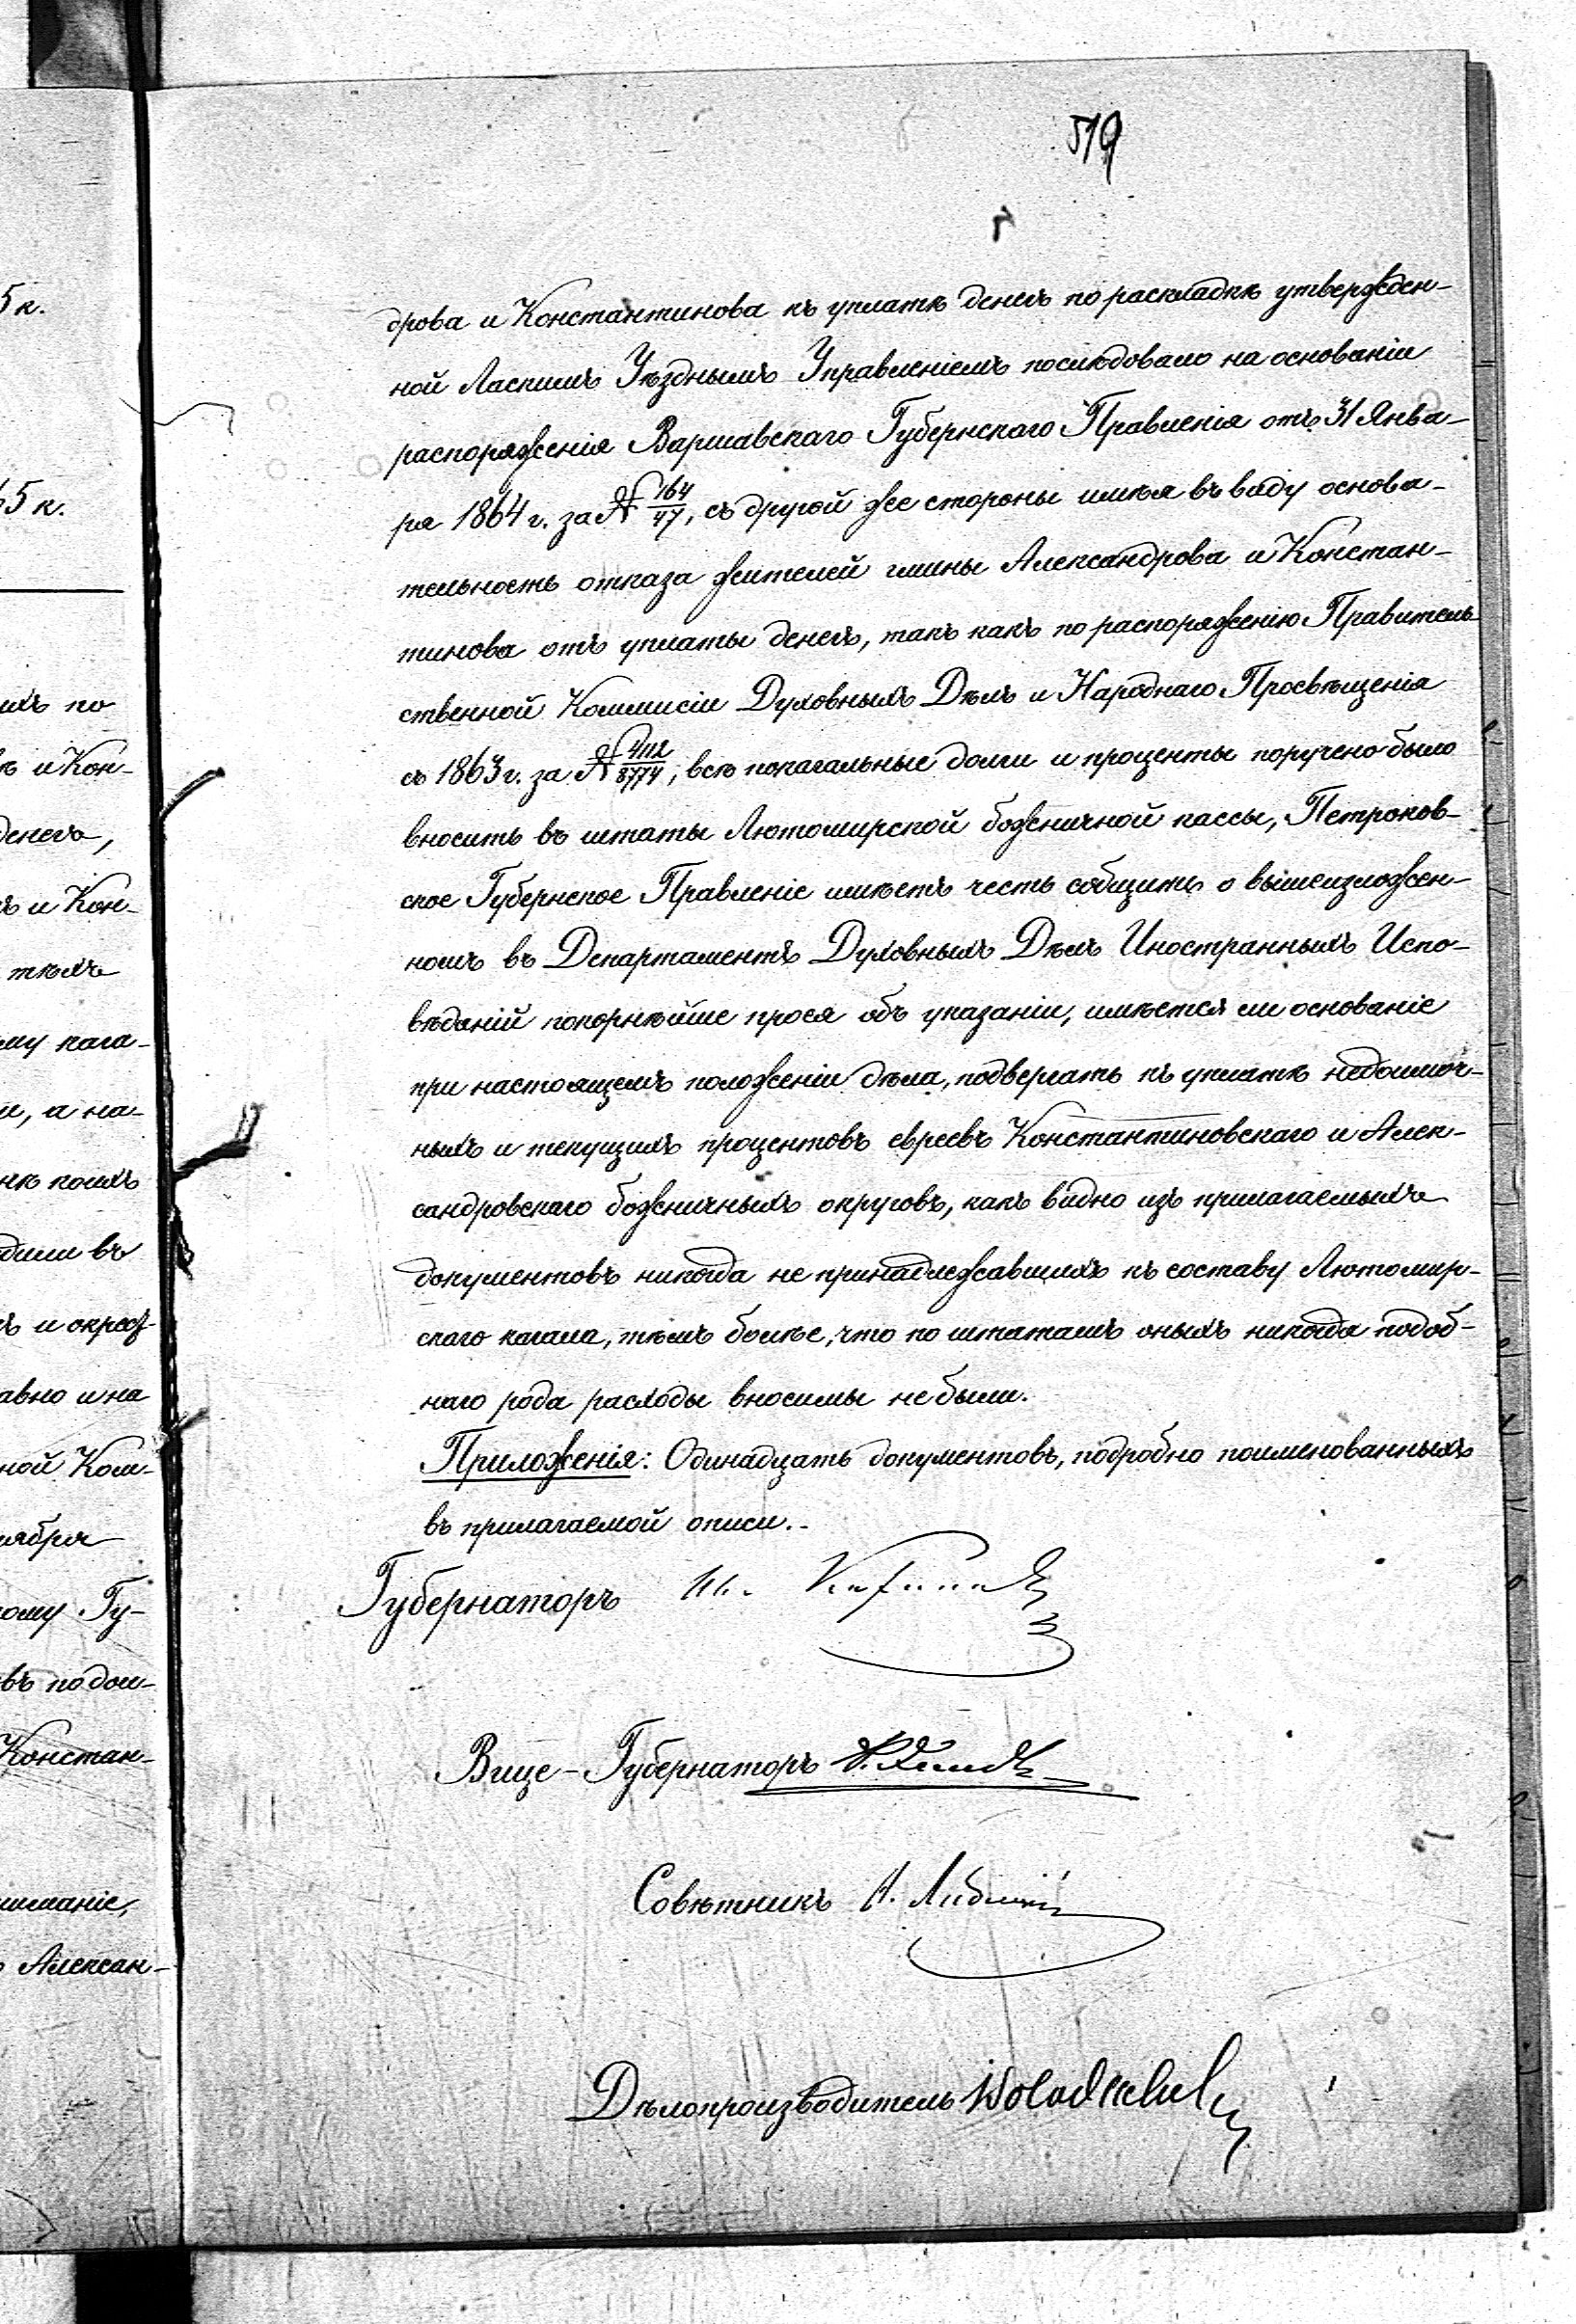 519
дрова и Константинова къ уплатѣ денегъ по раскладкѣ утвержден-
ной Ласкимъ Уѣзднымъ Управленіемъ послѣдовало на основаніи
распоряженія Варшавскаго Губернскаго Правленія отъ 31 Янва-
ря 1864 г. за № 164/47, съ другой же стороны имѣя въ виду основа-
тельность отказа жителей гмины Александрова и Констан-
тинова отъ уплаты денегъ, такъ какъ по распоряженію Правитель-
ственной Коммисіи Духовныхъ Дѣлъ и Народнаго Просвѣщенія
съ 1863 г. за № 4112/8774, всѣ покагальные долги и проценты поручено было
вносить въ штаты Лютомирской божничной кассы, Петроков-
ское Губернское Правленіе имѣетъ честь сообщить о вышеизложен-
номъ въ Департаментъ Духовныхъ Дѣлъ Иностранныхъ Испо-
вѣданій покорнѣйше прося объ указаніи, имѣется ли основаніе
при настоящемъ положеніи дѣла, подвергать къ уплатѣ недоимоч-
ныхъ и текущихъ процентовъ евреевъ Константиновскаго и Алек-
сандровскаго божничныхъ округовъ, какъ видно изъ прилагаемыхъ
документовъ никогда не принадлежавшихъ къ составу Лютомир-
скаго кагала, тѣмъ болѣе, что по штатамъ оныхъ никогда подоб-
наго рода расходы вносимы не были.
Приложенія: Одинадцать документовъ, подробно поименованныхъ
въ прилагаемой описи.
Губернаторъ
Вице-Губернаторъ
Совѣтникъ
Дѣлопроизводитель
5 к.
65 к.
ихъ по
и Кон-
денегъ,
и Кон-
тѣхъ
му кага-
и, а на-
коихъ
въ
и окрест-
авно и на
ной Ком-
ября
ому Гу-
Констан-
Алексан-